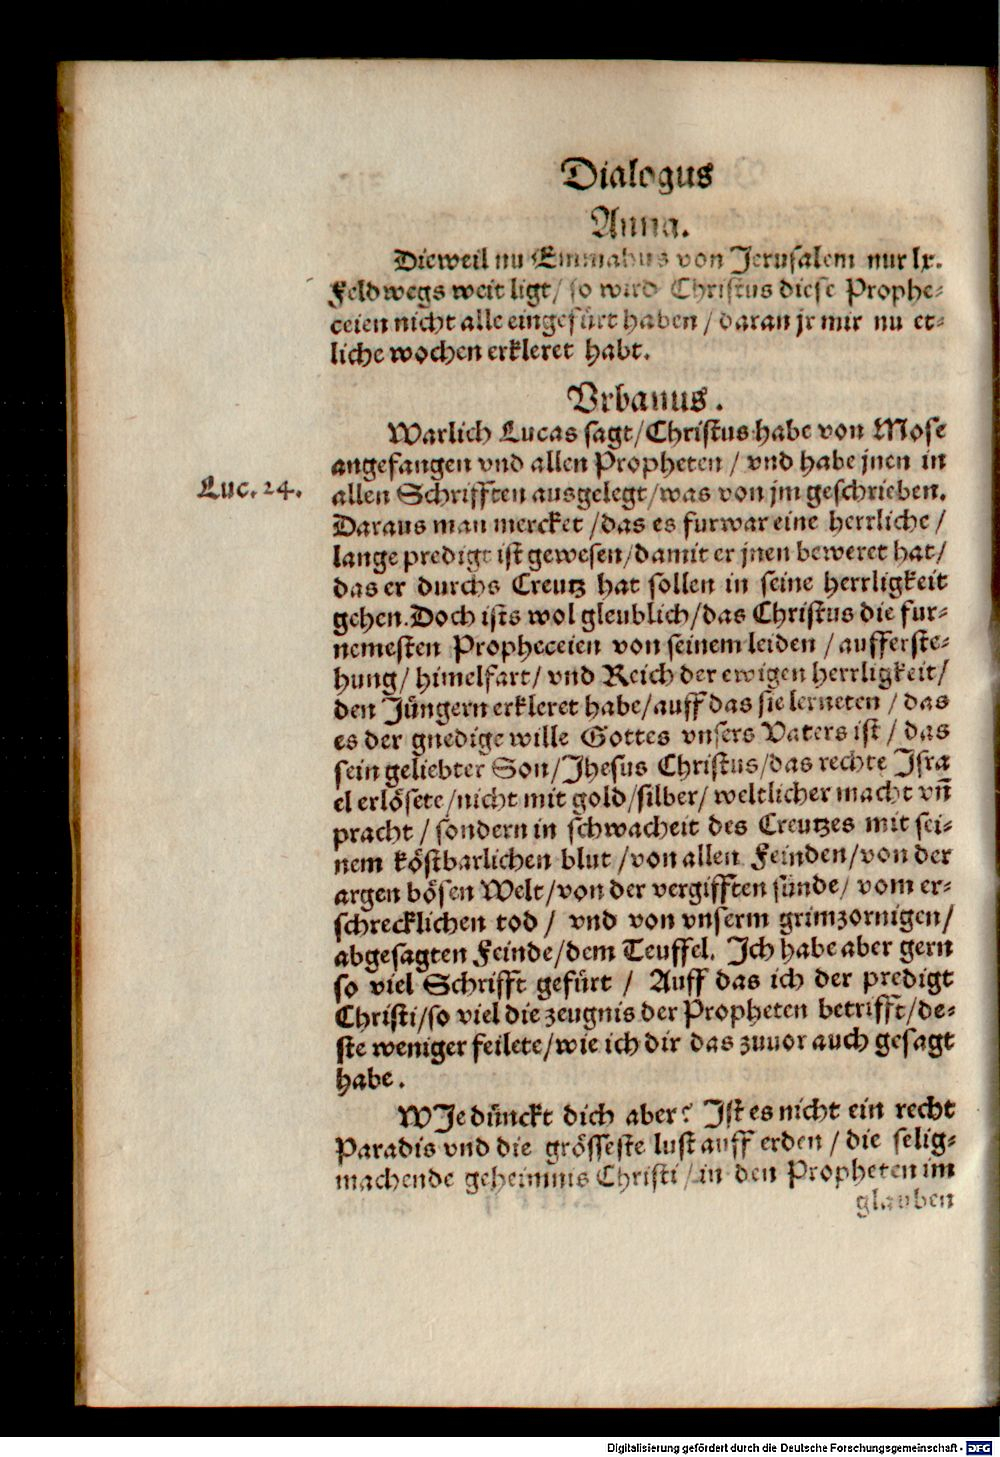 Dialogus
Anna.
Dieweil nu Emmahus von Jerusalem nur lx.
Feldwegs weit ligt/ so wird Christus diese Prophe-
ceien nicht alle eingefürt haben / daran jr mir nu et-
liche wochen erkleret habt.
Vrbanus.
Warlich Lucas sagt/Christus habe von Mose
angefangen vnd allen Propheten / vnd habe jnen in
Luc. 24.
allen Schrifften ausgelegt/was von jm geschrieben.
Daraus man mercket /das es furwar eine herrliche /
lange predigt ist gewesen/damit er jnen beweret hat/
das er durchs Creutz hat sollen in seine herrligkeit
gehen.Doch ists wol gleublich/das Christus die fur-
nemesten Propheceien von seinem leiden / aufferste-
hung/ himelfart/ vnd Reich der ewigen herrligkeit/
den Jüngern erkleret habe/auff das sie lerneten / das
es der gnedige wille Gottes vnsers Vaters ist / das
sein geliebter Son/Jhesus Christus/das rechte Isra
el erlösete/nicht mit gold/silber/ weltlicher macht vn̄
pracht / sondern in schwacheit des Creutzes mit sei-
nem köstbarlichen blut /von allen Feinden/von der
argen bösen Welt/von der vergifften sünde/ vom er-
schrecklichen tod / vnd von vnserm grimzornigen/
abgesagten Feinde/dem Teuffel. Ich habe aber gern
so viel Schrifft gefürt / Auff das ich der predigt
Christi/so viel die zeugnis der Propheten betrifft/de-
ste weniger feilete/wie ich dir das zuuor auch gesagt
habe.
WJe dünckt dich aber? Ist es nicht ein recht
Paradis vnd die grösseste lust auff erden / die selig-
machende geheimnis Christi / in den Propheten im
glauben
Digitalisierung gefördert durch die Deutsche Forschungsgemeinschaft - DFG